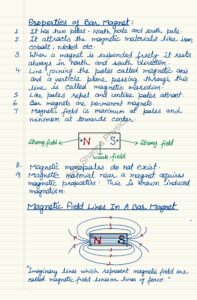 Properties of Bar Magnet:
1. It has two poles - North pole and south pole.
2. It attracts the magnetic materials like iron,
cobalt, nickel etc.
3. When a magnet is suspended freely it rests
always in north and south direction
4. Line joining the poles called magnetic axis
and a verticle plane passing through this
line is called magnetic meridian.
5. Like poles repel and unlike poles attract.
6. Bar magnets are permanent magnets
7. Magnetic field is maximum at poles and
minimum at towards center.
Strong field
N S
Strong field
weak field
8. Magnetic monopoles do not exist.
9. Magnetic material near a magnet acquires
magnetic properties. This is known induced
magnetism.
Magnetic Field Lines In A Bar Magnet
N S
"Imaginary lines which represent magnetic field are
called magnetic field lines or lines of force."